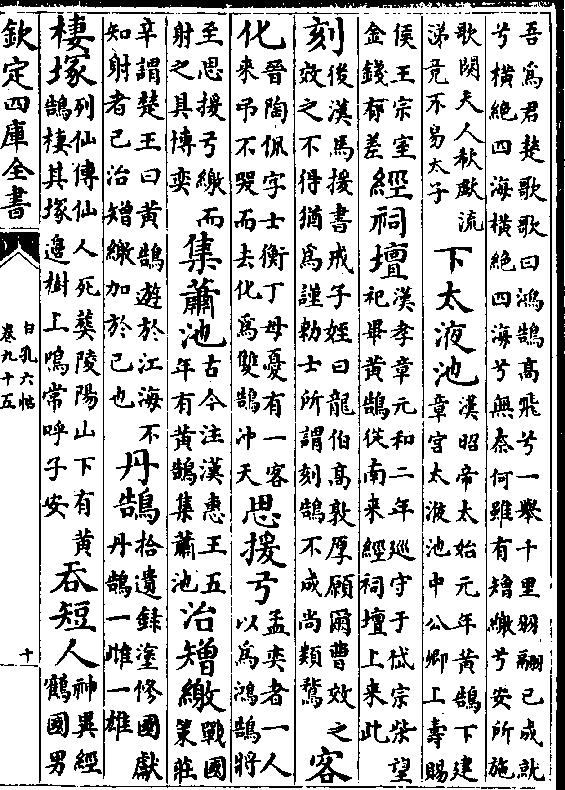 吾為君楚歌歌曰鴻鵠髙飛兮一舉千里羽翮已成就
兮横絶四海横絶四海兮無奈何雖有矰繳兮安所施
歌闋夫人欷歔流
涕竟不易太子
下太液池
漢昭帝太始元年黄鵠下建
章宫太液池中公卿上壽賜
侯王宗室
金錢有差
經祠壇
漢孝章元和二年廵守于岱宗柴望
祀畢黄鵠從南来經祠壇上来此
刻
後漢馬援書戒子姪曰龍伯髙敦厚願爾曹效之
效之不得猶為謹勑士所謂刻鵠不成尚類鶩
客
化
晉陶侃字士衡丁母憂有一客
来弔不哭而去化為雙鵠沖天
思援弓
孟奕者一人
以為鴻鵠將
至思援弓繳而
射之具博奕
集蕭池
古今注漢惠王五
年有黄鵠集蕭池
治矰繳
戰國
策莊
辛謂楚王曰黄鵠遊於江海不
知射者已治矰繳加於己也
丹鵠
拾遺録塗修國獻
丹鵠一雌一雄
棲塚
列仙傳仙人死葬陵陽山下有黄
鵠棲其塚邊樹上鳴常呼子安
吞短人
神異經
鶴國男
欽定四庫全書
白孔六帖
卷九十五
十